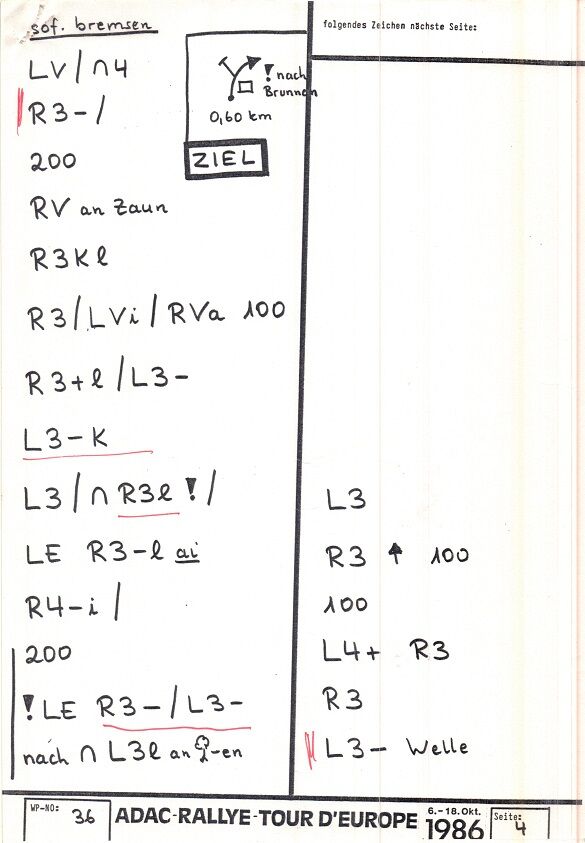 sof. bremsen
LV / ∩ 4
R3 - /
200
RV an Zaun
R3 K l
R3 / LVi / RVa 100
R3 + l / L3 -
L3 - K
L3 / ∩ R3l ! /
LE R3 - l ai
R4 - i /
200
! LE R3 - / L3 -
nach ∩ L3l an -en
! nach
Brunnen
0,60 km
ZIEL
folgendes Zeichen nächste Seite:
L3
R3 ↑ 100
100
L4+ R3
R3
L3 - Welle
WP-NO: 36
ADAC-RALLYE-TOUR D'EUROPE
6.-18.Okt.
1986
Seite: 4